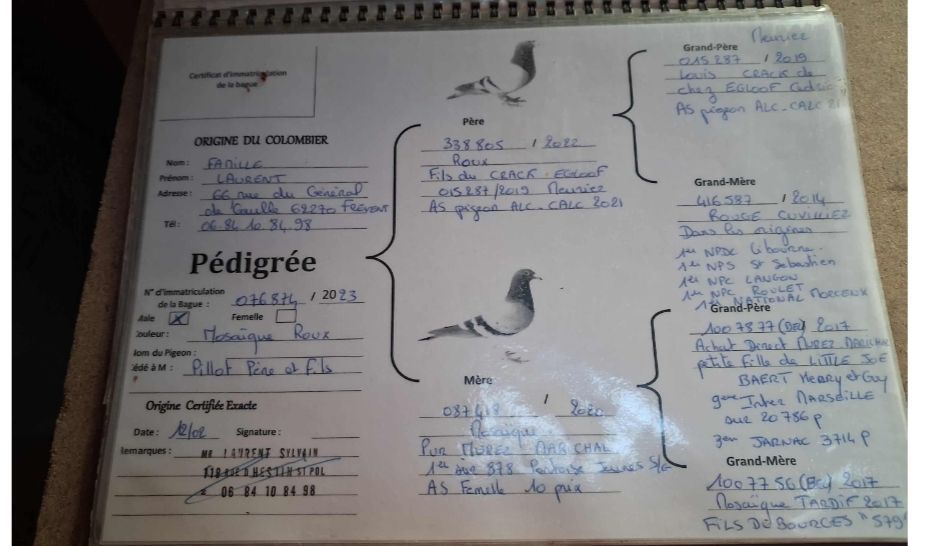 Certificat d'immatriculation
de la bague
ORIGINE DU COLOMBIER
Nom : FAMILLE
Prénom : LAURENT
Adresse : 66 rue du Général
de Gaulle 62270 FREVENT
Tél : 06.84.10.84.98
Pédigrée
N° d'immatriculation
de la Bague : 076874 / 2023
Male X Femelle
Couleur : Mosaïque Roux
Nom du Pigeon :
Cédé à M : Pillot Père et Fils
Origine Certifiée Exacte
Date : 12/02 Signature :
Remarques : MR LAURENT SYLVAIN
118 RUE D'HESDIN ST POL
06 84 10 84 98
Père
338805 / 2022
Roux
Fils du CRACK EGLOOF
015287/2019 Meuriez
AS pigeon ALC-CALC 2021
Mère
087418 / 2020
Mosaique
PUR MUREZ MARICHAL
1er sur 878 Pontoise Jeunes S/G
AS Femelle 10 prix
Grand-Père Meuriez
015287 / 2019
Louis CRACK de
chez EGLOOF Cédric
AS pigeon ALC-CALC 21
Grand-Mère
416587 / 2014
ROUGE CUVILLIEZ
Dans les origines
1er NPDC Libourne
1er NPS St Sebastien
1er NPC LANGON
1er NPC ROULET
1er NATIONAL MORCENX
Grand-Père
1007877 (Bel) 2017
Achat Direct MUREZ MARICHAL
petite Fille de LITTLE JOE
BAERT Henry et Guy
9eme Inter MARSEILLE
sur 20786 p
3em JARNAC 3714 P
Grand-Mère
1007756 (Bel) 2017
Mosaïque TARDIF 2017
FILS DU BOURGES "579"